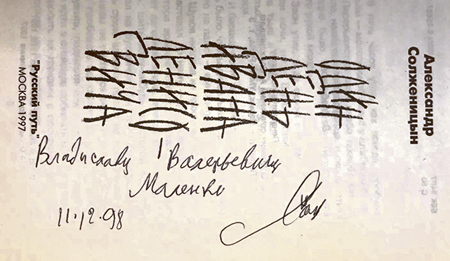 Александр
Солженицын
ОДИН
ДЕНЬ
ИВАНА
ДЕНИСО
ВИЧА
"Русский путь"
МОСКВА·1997
Владиславу Валерьевичу
Маленко
11.12.98